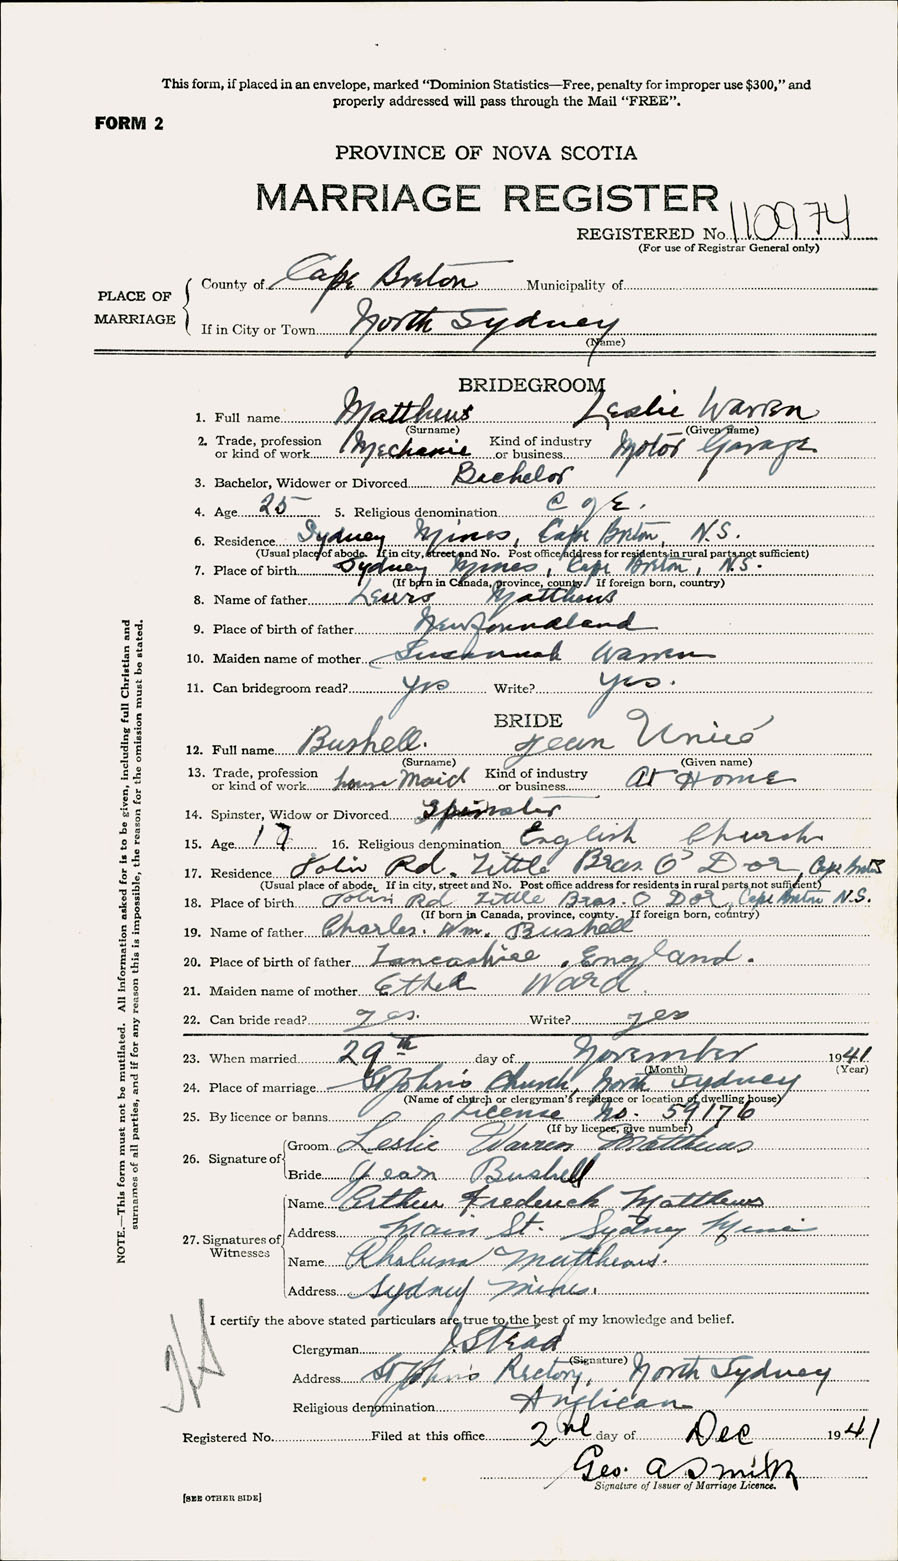 This form, if placed in an envelope, marked "Dominion Statistics—Free, penalty for improper use $300," and
properly addressed will pass through the Mail "FREE".
FORM 2
PROVINCE OF NOVA SCOTIA
MARRIAGE REGISTER
REGISTERED No. 110974
(For use of Registrar General only)
PLACE OF MARRIAGE
County of Cape Breton Municipality of
If in City or Town North Sydney
(Name)
BRIDEGROOM
1. Full name Matthews Leslie Warren
(Surname) (Given name)
2. Trade, profession or kind of work Mechanic Kind of industry or business Motor Garage
3. Bachelor, Widower or Divorced Bachelor
4. Age 25 5. Religious denomination C of E.
6. Residence Sydney Mines, Cape Breton, N.S.
(Usual place of abode. If in city, street and No. Post office address for residents in rural parts not sufficient)
7. Place of birth Sydney Mines, Cape Breton, N.S.
(If born in Canada, province, county. If foreign born, country)
8. Name of father Lewis Matthews
9. Place of birth of father Newfoundland
10. Maiden name of mother Susannah Warren
11. Can bridegroom read? yes Write? yes.
BRIDE
12. Full name Bushell. Jean
(Surname) (Given name)
13. Trade, profession or kind of work house Maid Kind of industry or business At Home
14. Spinster, Widow or Divorced Spinster
15. Age 16. Religious denomination English Church
17. Residence Rd. Little Bras O' Dor, Cape Breton
(Usual place of abode. If in city, street and No. Post office address for residents in rural parts not sufficient)
18. Place of birth Rd Little Bras O Dor, Cape Breton N.S.
(If born in Canada, province, county. If foreign born, country)
19. Name of father Charles. Wm. Bushell
20. Place of birth of father Lancashire, England.
21. Maiden name of mother Ethel Ward.
22. Can bride read? yes. Write? yes
23. When married 29th day of November 1941
(Month) (Year)
24. Place of marriage St John's Church, North Sydney
(Name of church or clergyman's residence or location of dwelling house)
25. By licence or banns License No. 59176
(If by licence, give number)
26. Signature of
Groom Leslie Warren Matthews
Bride Jean Bushell
27. Signatures of Witnesses
Name Arthur Frederick Matthews
Address Main St. Sydney Mines
Name Matthews.
Address Sydney Mines.
I certify the above stated particulars are true to the best of my knowledge and belief.
Clergyman J. Stead
(Signature)
Address St John's Rectory, North Sydney
Religious denomination Anglican
Registered No. Filed at this office 2nd day of Dec 1941
Geo. A Smith
Signature of Issuer of Marriage Licence.
[SEE OTHER SIDE]
NOTE.—This form must not be mutilated. All information asked for is to be given, including full Christian and
surnames of all parties, and if for any reason this is impossible, the reason for the omission must be stated.